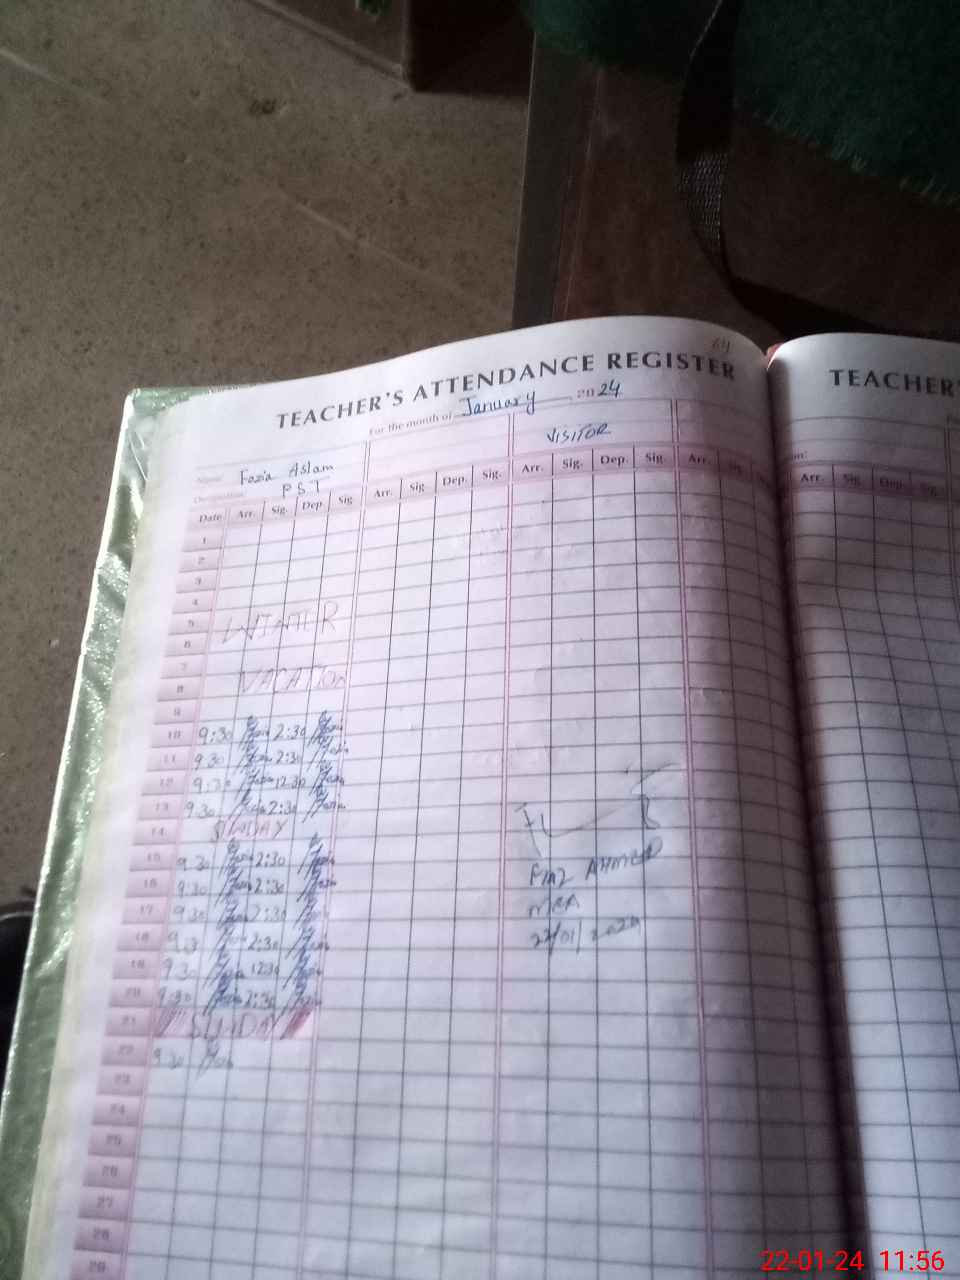 64
TEACHER'S ATTENDANCE REGISTER
For the month of January 2024
VISITOR
Name: Fazia Aslam
Designation PST
Date Arr. Sig. Dep. Sig. Arr. Sig. Dep. Sig. Arr. Sig. Dep. Sig. Arr.
1
2
3
4
5 WINTER
6
7
8 VACATION
9
10 9:30 Fazia 2:30 Fazia
11 9:30 Fazia 2:30 Fazia
12 9:30 Fazia 12:30 Fazia
13 9:30 Fazia 2:30 Fazia
14 SUNDAY
15 9:30 Fazia 2:30 Fazia
16 9:30 Fazia 2:30 Fazia
17 9:30 Fazia 2:30 Fazia
18 9:3 Fazia 2:30 Fazia
19 9:30 Fazia 12:30 Fazia
20 9:30 Fazia 2:30 Fazia
21 SUNDAY
22 9:30 Fazia
23
24
25
26
27
28
29
AHMED
MEA
22/01/2024
TEACHER'
Arr. Sig. Dep. Sig.
22-01-24 11:56